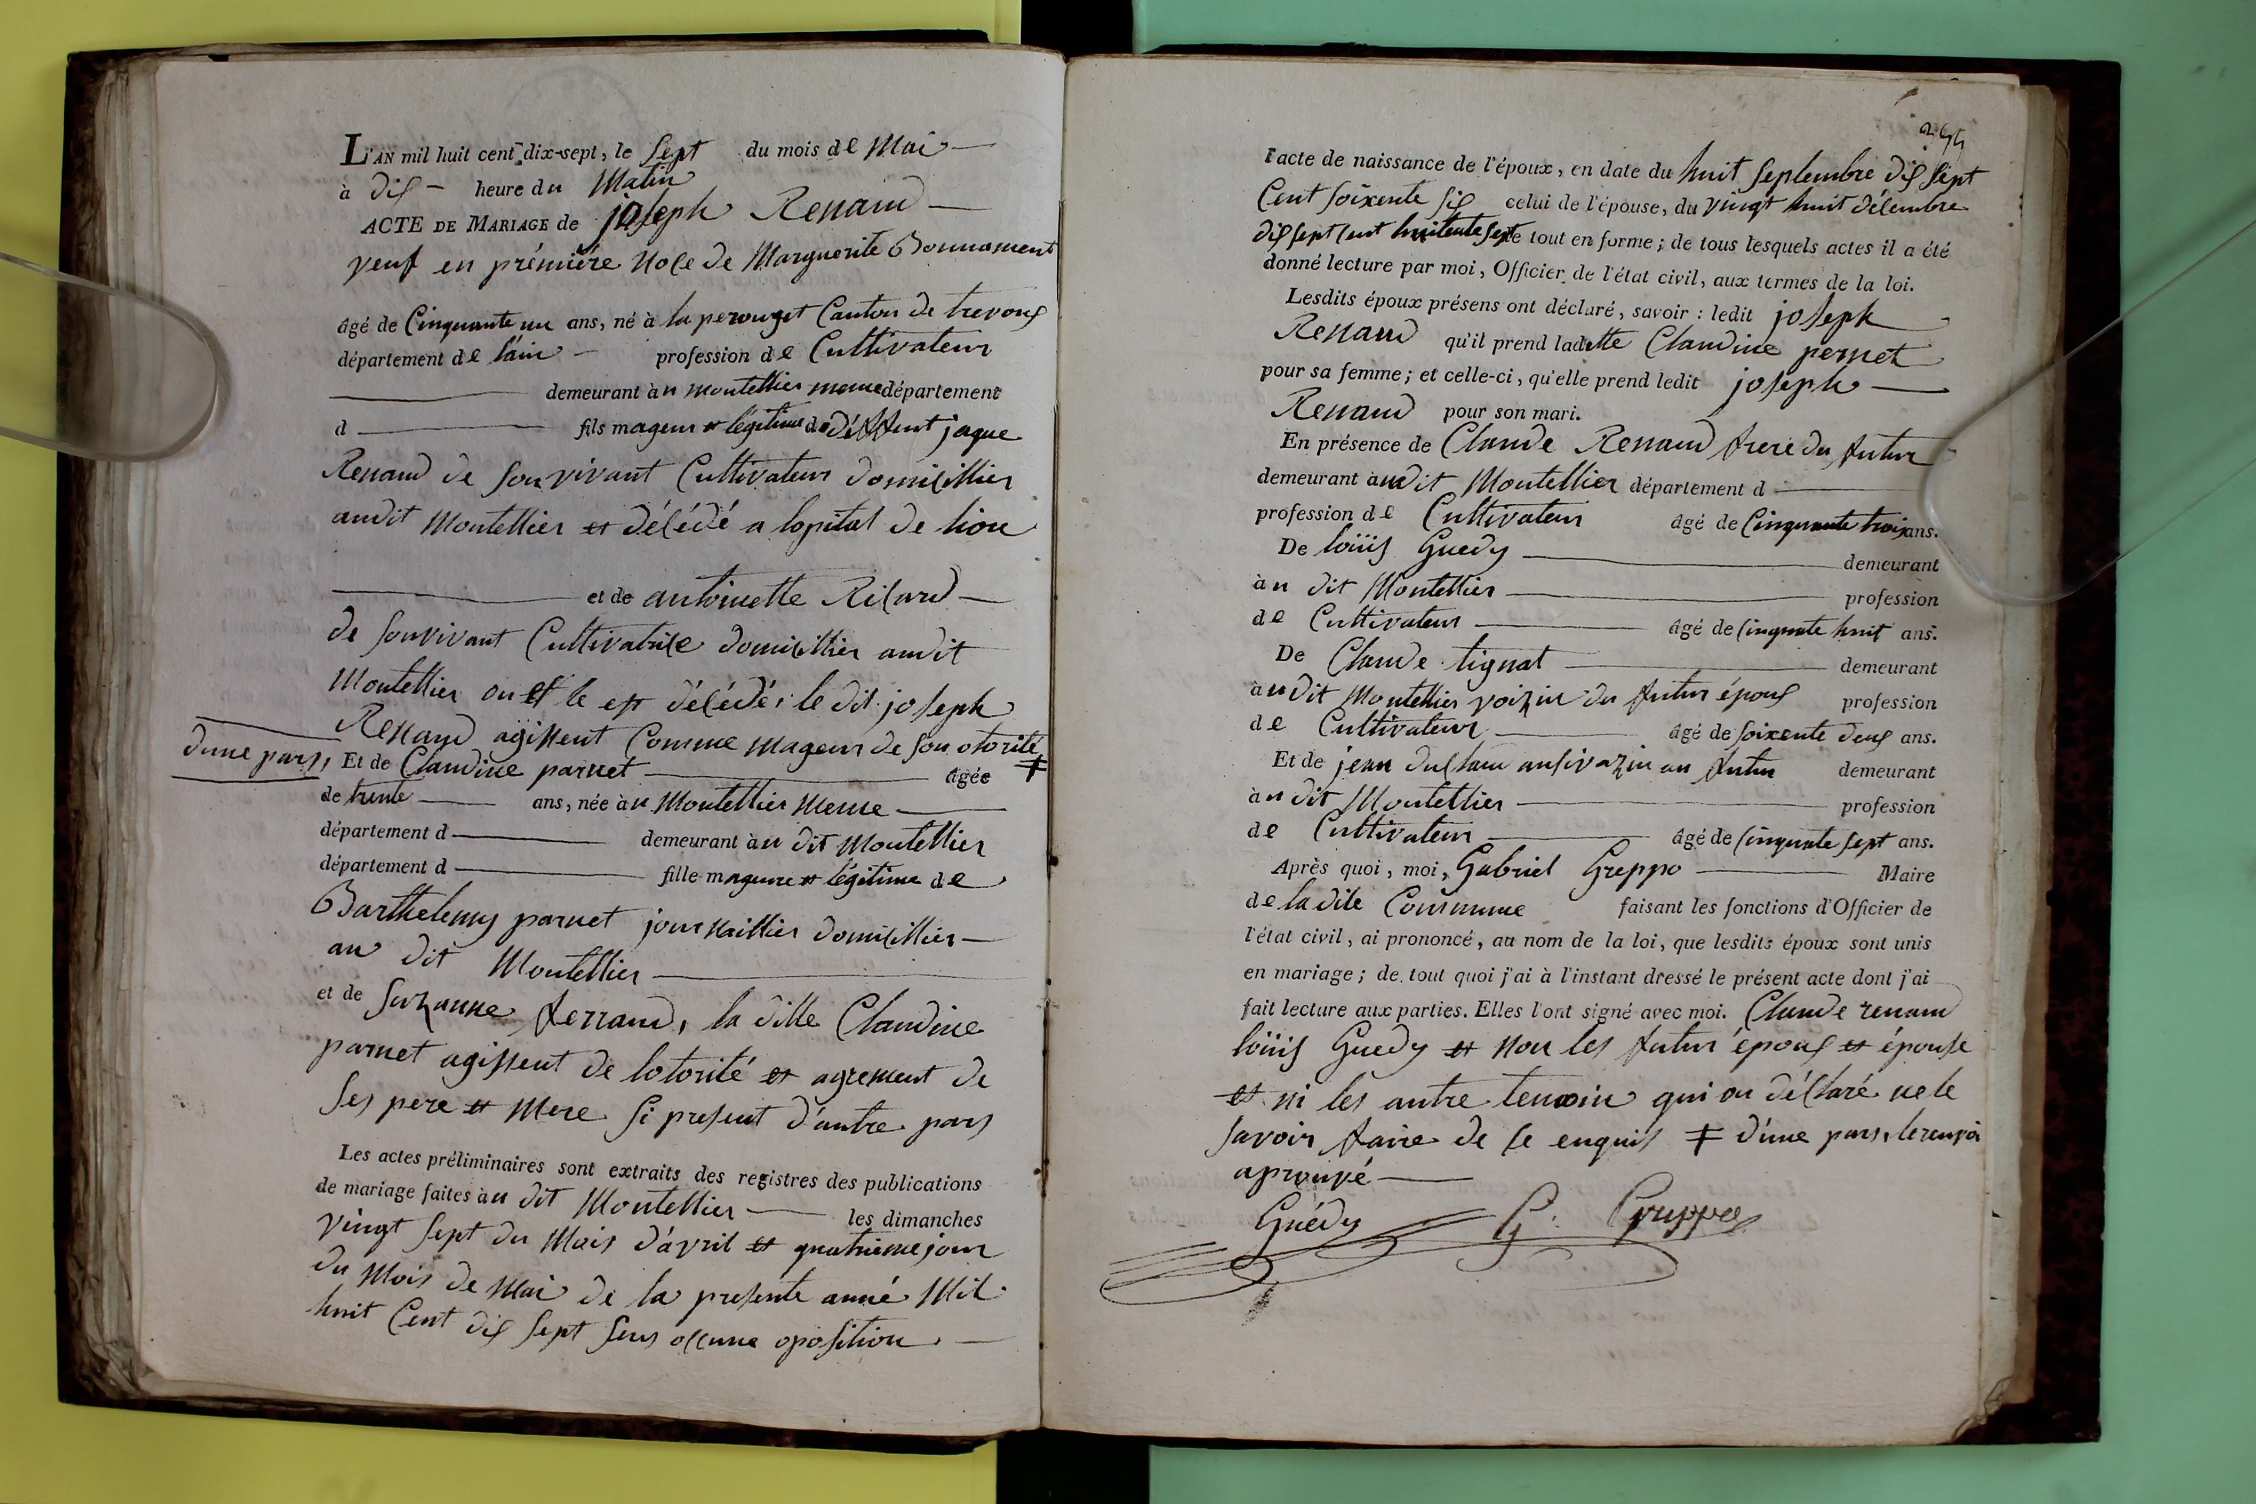 L'AN mil huit cent dix-sept, le sept du mois de Mai
à dis heure du Matin
ACTE DE MARIAGE de joseph Renaud
veuf en prémiére Noce de Marguerite Bonnament
âgé de Cinquante un ans, né à la perouget Canton de trevous
département de l'ain profession de Cultivateur
demeurant à u montellier meme département
d fils mageur et légitime de déffunt jaque
Renaud de son vivant Cultivateur domicillier
audit Montellier et décédé a lopital de lion
et de antoinette Ricard
de son vivant Cultivatrice domicillier audit
Montellier ou elle est décédé; le dit joseph
Renaud agissent Comme mageur de son otorité ‡
d'une pars, Et de Claudine parnet âgée
de trente ans, née à u Montellier meme
département d demeurant à u dit Montellier
département d fille mageure et légitime de
Barthelemy parnet journaillier domicillier
au dit Montellier
et de Suzanne ferrand, la ditte Claudine
parnet agissent de lotorité et agrement de
ses pere et mere si present d'autre pars
Les actes préliminaires sont extraits des registres des publications
de mariage faites à u dit Montellier les dimanches
vingt sept du Mois d'avril et quatrieme jour
du Mois de Mai de la presente anné Mil
huit Cent dis sept sens occune oposition
l'acte de naissance de l'époux, en date du huit septembre dis sept
Cent soixente sis celui de l'épouse, du vingt huit décembre
dis sept cent huitente sept le tout en forme; de tous lesquels actes il a été
donné lecture par moi, Officier de l'état civil, aux termes de la loi.
Lesdits époux présens ont déclaré, savoir : ledit joseph
Renaud qu'il prend laditte Claudine pernet
pour sa femme; et celle-ci, qu'elle prend ledit joseph
Renaud pour son mari.
En présence de Claude Renaud frere du futur
demeurant à udit Montellier département d
profession de Cultivateur âgé de Cinquante trois ans.
De loüis Guedy demeurant
à u dit Montellier profession
de Cultivateur âgé de Cinquante huit ans.
De Claude tignat demeurant
à u dit Montellier voizin du futur épous profession
de Cultivateur âgé de soixente deus ans.
Et de jean duclau ausivozin au futur demeurant
à u dit Montellier profession
de Cultivateur âgé de Cinquante sept ans.
Après quoi, moi, Gabriel Greppo Maire
de la dite Commune faisant les fonctions d'Officier de
l'état civil, ai prononcé, au nom de la loi, que lesdits époux sont unis
en mariage; de tout quoi j'ai à l'instant dressé le présent acte dont j'ai
fait lecture aux parties. Elles l'ont signé avec moi. Claude renaud
loüis Guedy et non les futur épous et épouse
et ni les autre temoin qui on déclaré ne le
savoir faire de ce enquis ‡ d'une pars, le renvoi
aprouvé
Guédy G. Greppo